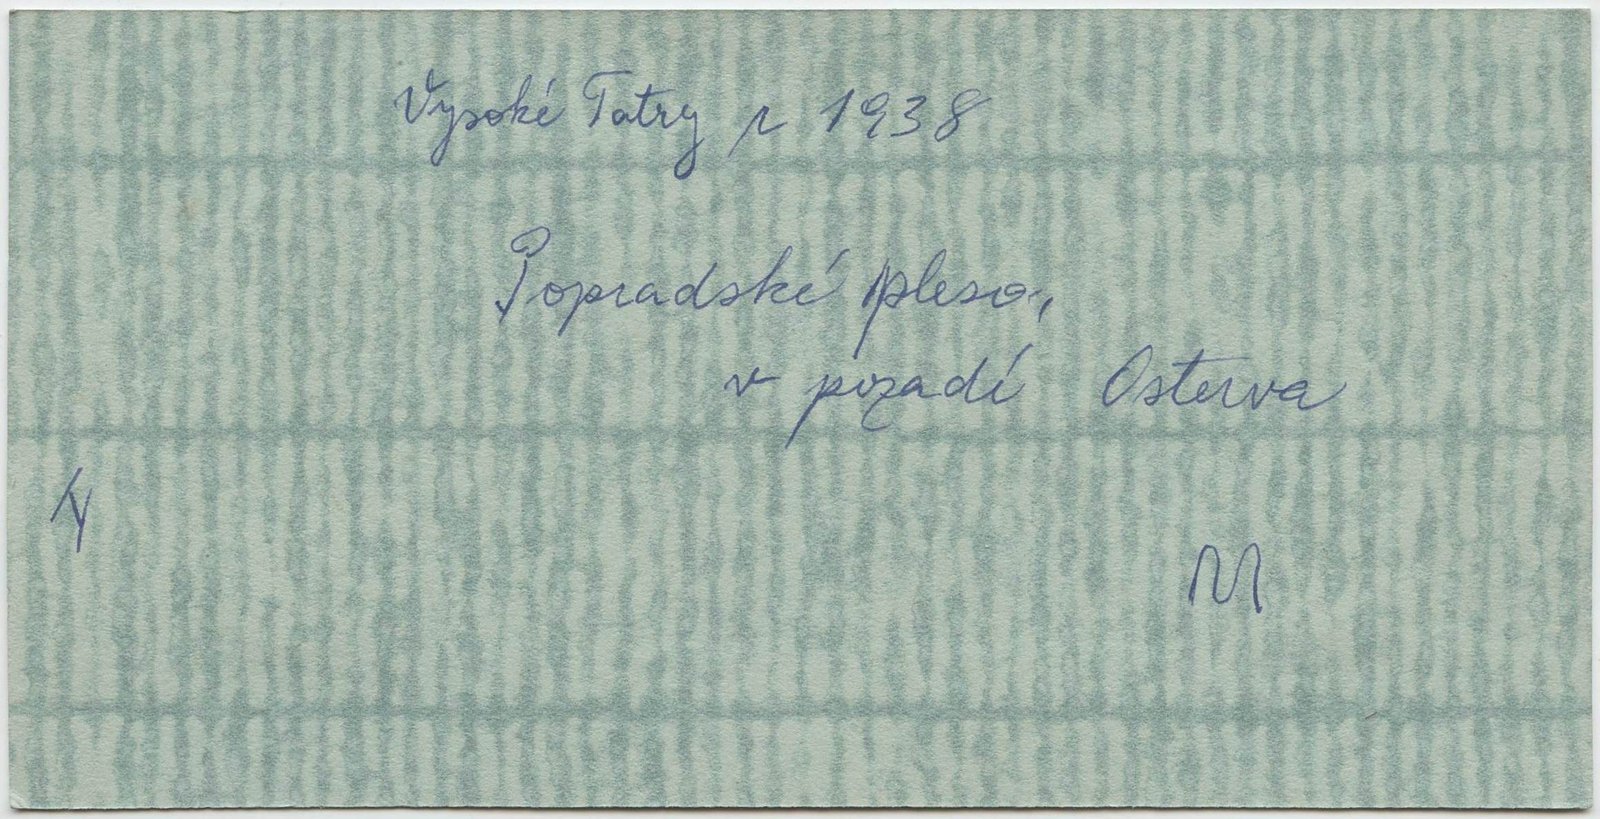 Vysoké Tatry r 1938
Popradské pleso,
v pozadí Osterva
M